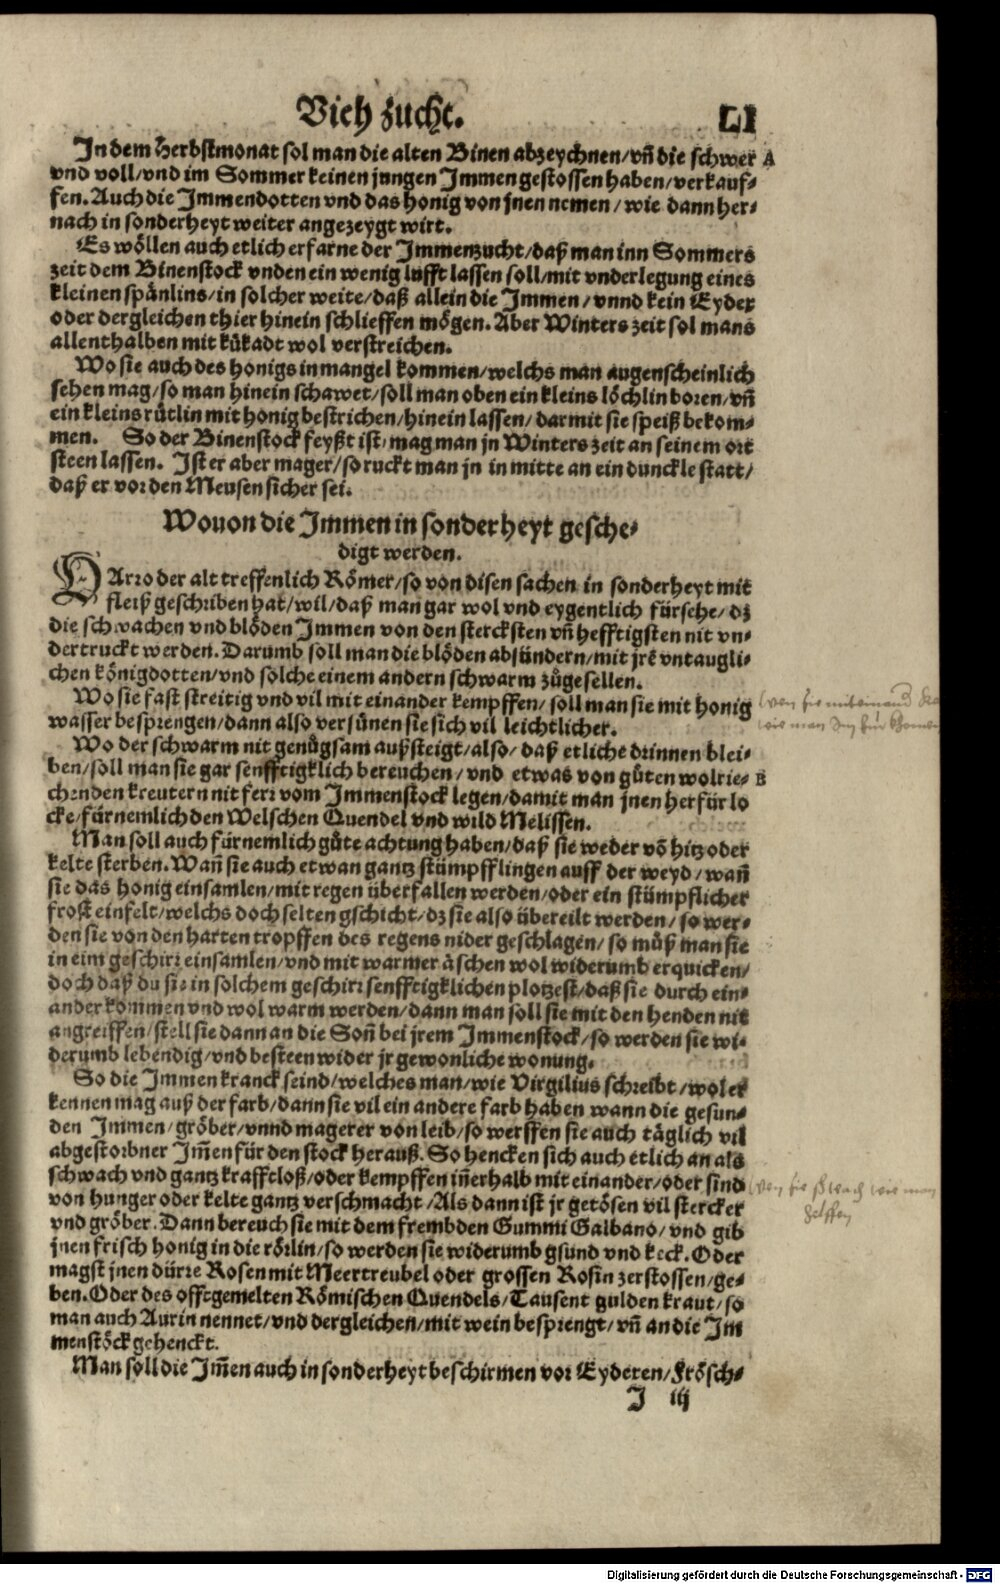 Vieh zucht. LI
In dem Herbstmonat sol man die alten Binen abzeychnen/vñ die schwer A
vnd voll/vnd im Sommer keinen jungen Immen gestossen haben/verkauf-
fen. Auch die Immendotten vnd das honig von jnen nemen/wie dann her-
nach in sonderheyt weiter angezeygt wirt.
Es wöllen auch etlich erfarne der Immenzucht/daß man inn Sommers
zeit dem Binenstock vnden ein wenig lufft lassen soll/mit vnderlegung eines
kleinen spänlins/in solcher weite/daß allein die Immen/vnnd kein Eydex
oder dergleichen thier hinein schlieffen mögen. Aber Winters zeit sol mans
allenthalben mit kükadt wol verstreichen.
Wo sie auch des honigs in mangel kommen/welchs man augenscheinlich
sehen mag/so man hinein schawet/soll man oben ein kleins löchlin boren/vñ
ein kleins rütlin mit honig bestrichen/hinein lassen/darmit sie speiß bekom-
men. So der Binenstock feyßt ist/mag man jn Winters zeit an seinem ort
steen lassen. Ist er aber mager/so ruckt man jn in mitte an ein dunckle statt/
daß er vor den Meusen sicher sei.
Wouon die Immen in sonderheyt gesche-
digt werden.
VArro der alt treffenlich Römer/so von disen sachen in sonderheyt mit
fleiß geschriben hat/wil/daß man gar wol vnd eygentlich fürsehe/dz
die schwachen vnd blöden Immen von den stercksten vñ hefftigsten nit vn-
dertruckt werden. Darumb soll man die blöden absündern/mit jrẽ vntaugli-
chen königdotten/vnd solche einem andern schwarm zůgesellen.
Wo sie fast streitig vnd vil mit einander kempffen/soll man sie mit honig
wasser besprengen/dann also versünen sie sich vil leichtlicher.
Wo der schwarm nit genůgsam außsteigt/also/daß etliche drinnen blei-
ben/soll man sie gar senfftigklich bereuchen/vnd etwas von gůten wolrie- B
chenden kreutern nit ferr vom Immenstock legen/damit man jnen herfür lo
cke/fürnemlich den Welschen Quendel vnd wild Melissen.
Man soll auch fürnemlich gůte achtung haben/daß sie weder võ hitz oder
kelte sterben. Wañ sie auch etwan gantz stümpfflingen auff der weyd/wañ
sie das honig einsamlen/mit regen überfallen werden/oder ein stümpflicher
frost einfelt/welchs doch selten gschicht/dz sie also übereilt werden/so wer-
den sie von den harten tropffen des regens nider geschlagen/so můß man sie
in eim geschirr einsamlen/vnd mit warmer äschen wol widerumb erquicken/
doch daß du sie in solchem geschirr senfftigklichen plotzest/daß sie durch ein-
ander kommen vnd wol warm werden/dann man soll sie mit den henden nit
angreiffen/stell sie dann an die Soñ bei jrem Immenstock/so werden sie wi-
derumb lebendig/vnd besteen wider jr gewonliche wonung.
So die Immen kranck seind/welches man/wie Virgilius schreibt/wol er
kennen mag auß der farb/dann sie vil ein andere farb haben wann die gesun-
den Immen/gröber/vnnd magerer von leib/so werffen sie auch täglich vil
abgestorbner Im̃en für den stock herauß. So hencken sich auch etlich an als
schwach vnd gantz krafftloß/oder kempffen iñerhalb mit einander/oder sind
von hunger oder kelte gantz verschmacht/Als dann ist jr getösen vil stercker
vnd gröber. Dann bereuch sie mit dem frembden Gummi Galbano/vnd gib
jnen frisch honig in die rörlin/so werden sie widerumb gsund vnd keck. Oder
magst jnen dürre Rosen mit Meertreubel oder grossen Rosin zerstossen/ge-
ben. Oder des offtgemelten Römischen Quendels/Tausent gulden kraut/so
man auch Aurin nennet/vnd dergleichen/mit wein besprengt/vñ an die Im
menstöck gehenckt.
Man soll die Im̃en auch in sonderheyt beschirmen vor Eyderen/Frösch-
J iij
wen sie schwach wie man
helffen
Digitalisierung gefördert durch die Deutsche Forschungsgemeinschaft - DFG